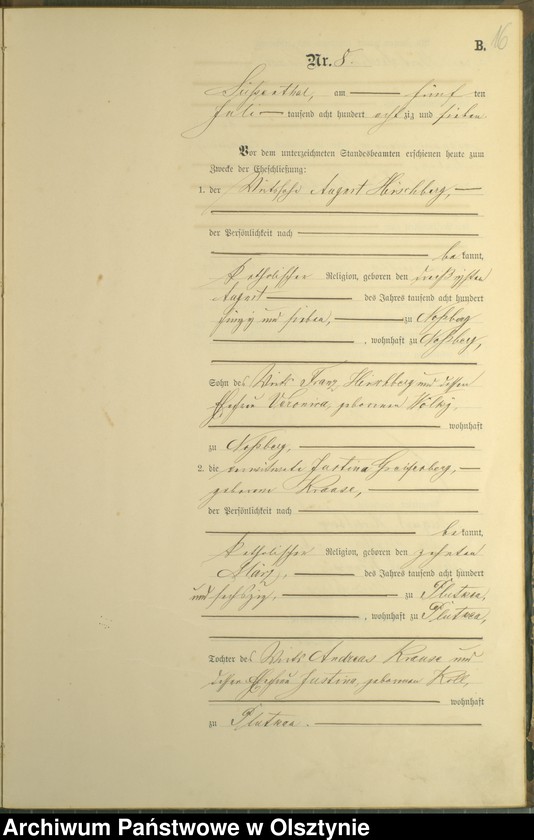 B. 16
Nr. 5.
Süssenthal, am fünf ten
Juli tausend acht hundert achtzig und sieben
Vor dem unterzeichneten Standesbeamten erschienen heute zum
Zwecke der Eheschließung:
1. der Wirthssohn August Hirschberg,
der Persönlichkeit nach
bekannt,
katholischer Religion, geboren den dreißigsten
August des Jahres tausend acht hundert
und sieben, zu Noßberg
, wohnhaft zu Noßberg,
Sohn des Wirths Franz Hirschberg und dessen
Ehefrau Veronica, geborenen Wölky
wohnhaft
zu Noßberg,
2. die verwittwete Justina Greifenberg,
geborene Krause,
der Persönlichkeit nach
bekannt,
katholischer Religion, geboren den zehnten
März, des Jahres tausend acht hundert
und sechszig, zu Plutken,
, wohnhaft zu Plutken,
Tochter des Wirths Andreas Krause und
dessen Ehefrau Justina, geborenen Koll,
wohnhaft
zu Plutken.
Archiwum Państwowe w Olsztynie